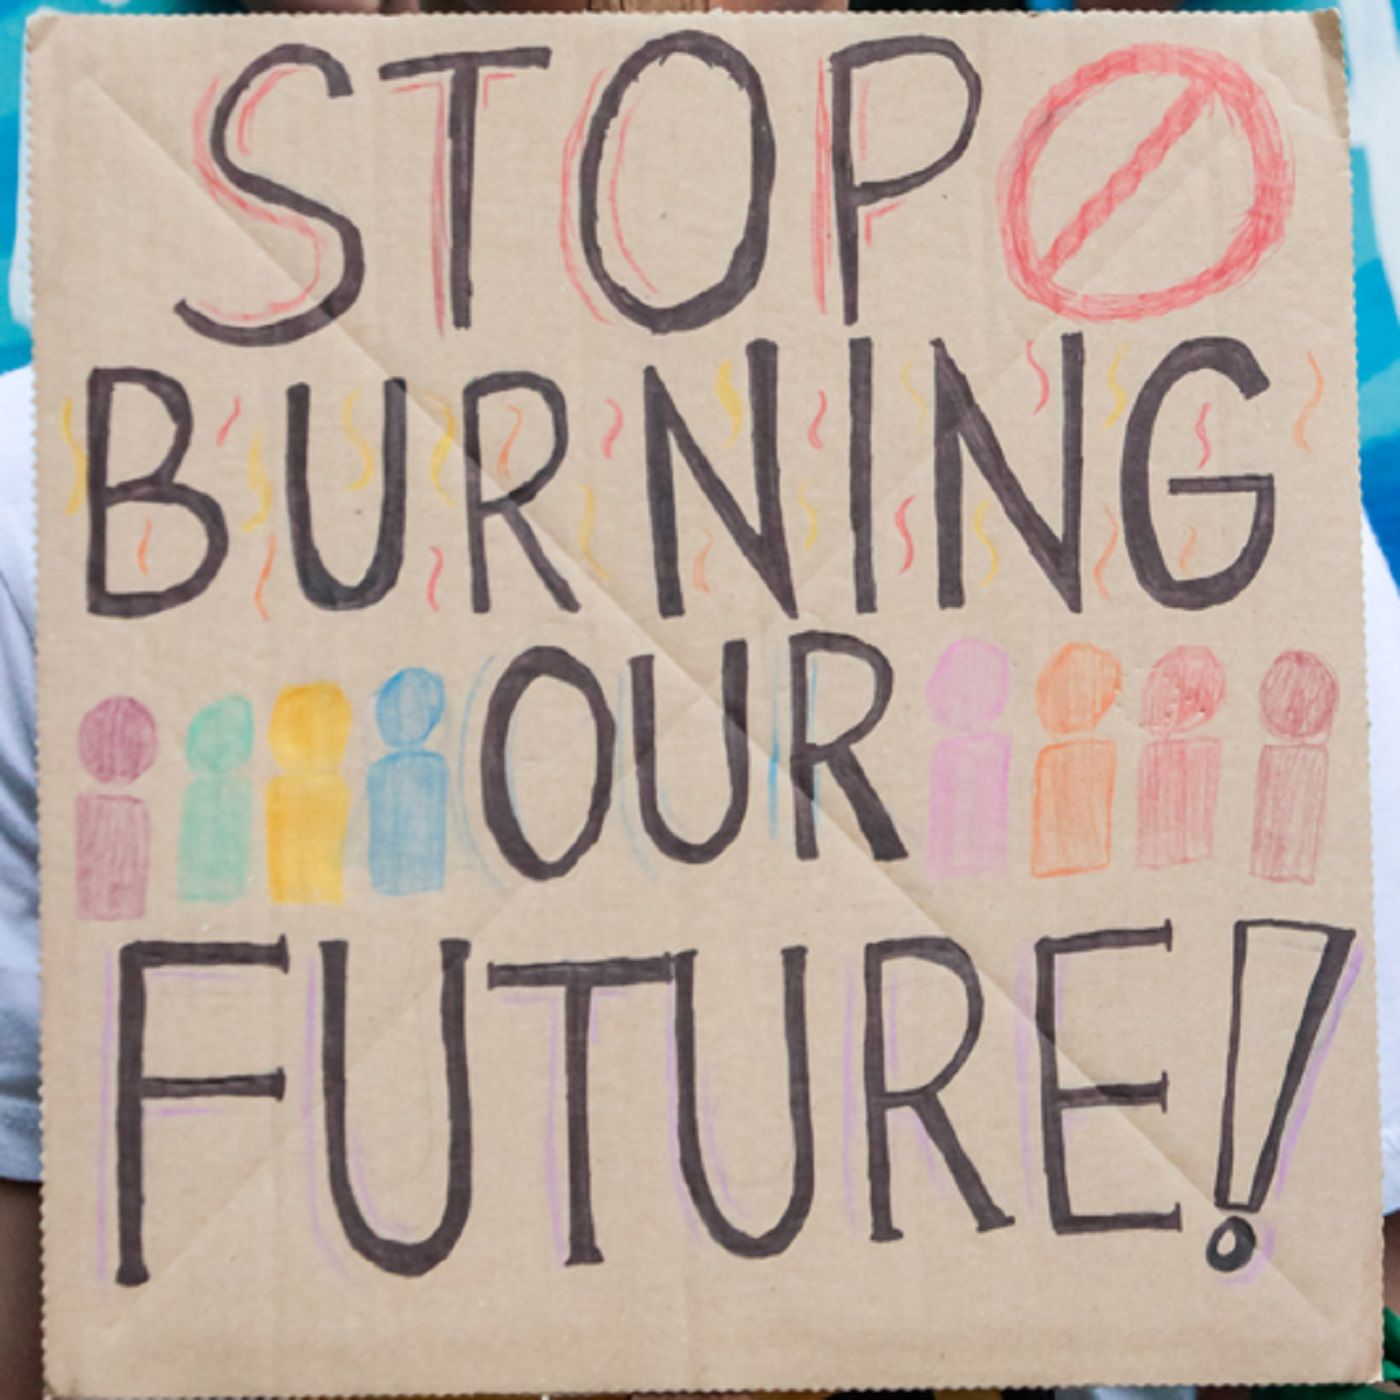 STOP
BURNING
OUR
FUTURE!